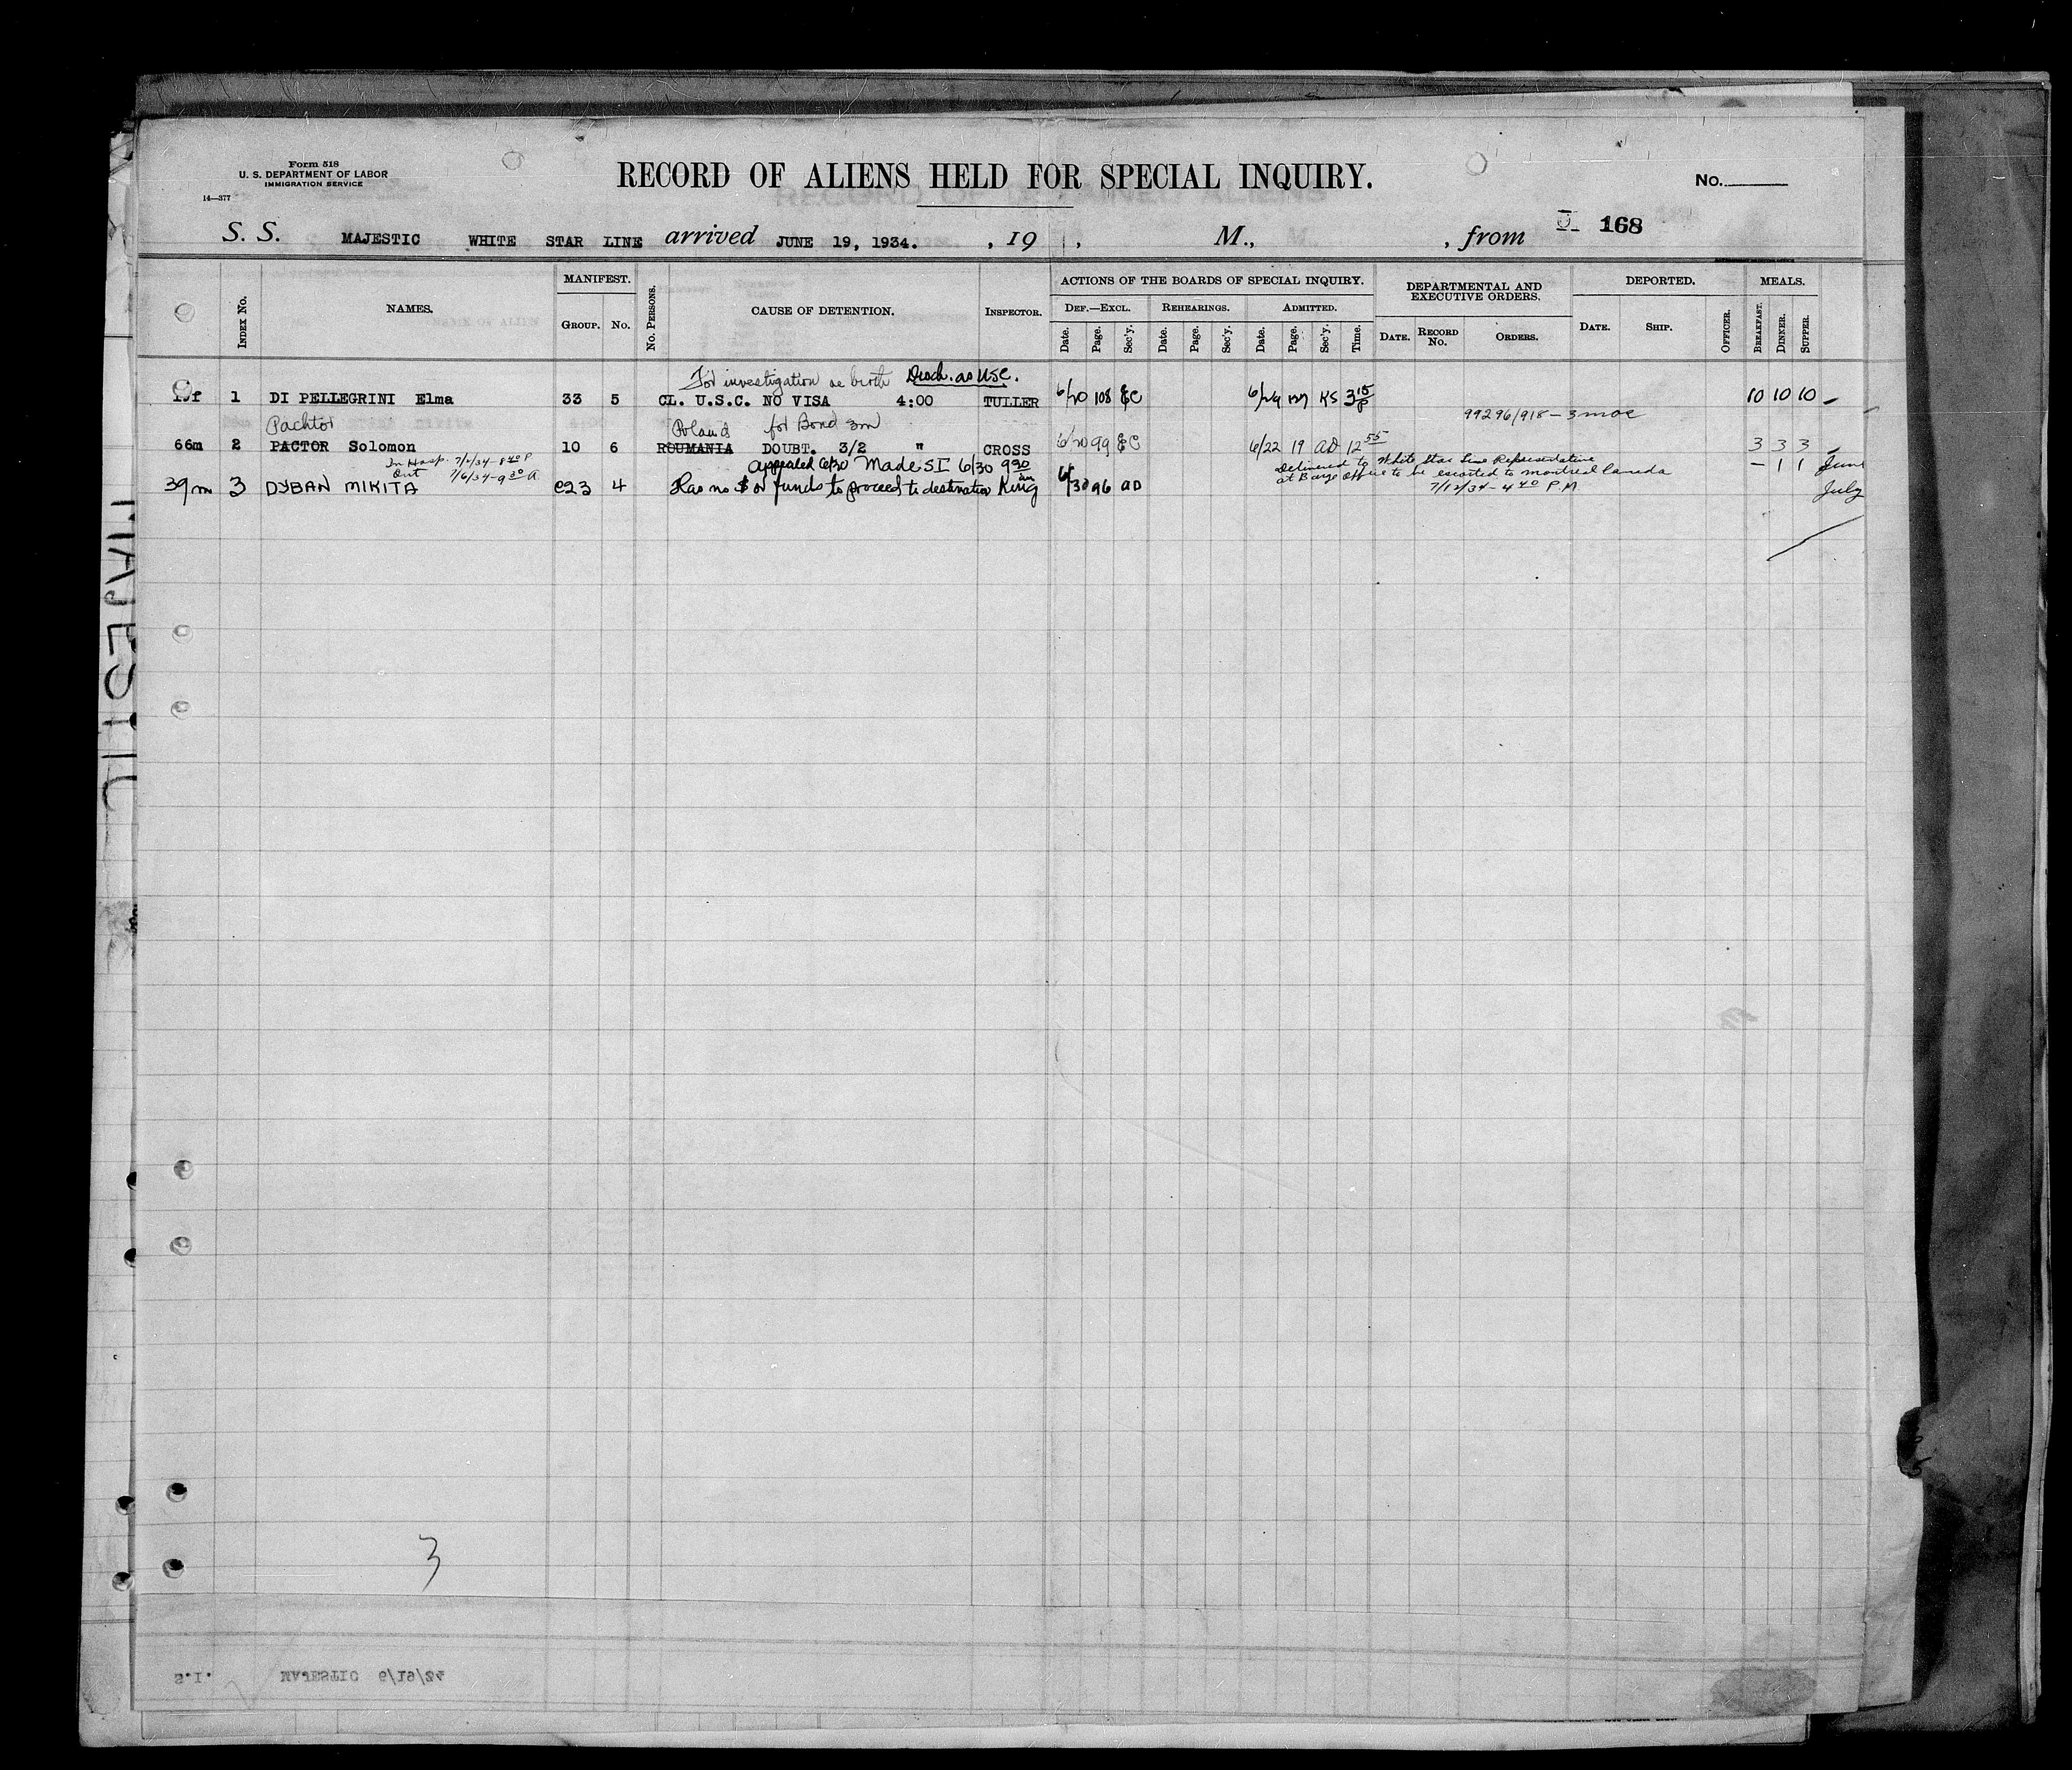 Form 518
U. S. DEPARTMENT OF LABOR
IMMIGRATION SERVICE
14—377
RECORD OF ALIENS HELD FOR SPECIAL INQUIRY.
No.
S. S. MAJESTIC WHITE STAR LINE arrived JUNE 19, 1934. , 19 , M., , from 168
Index No. NAMES. MANIFEST. Group. No. No. Persons. CAUSE OF DETENTION. Inspector. ACTIONS OF THE BOARDS OF SPECIAL INQUIRY. DEPARTMENTAL AND EXECUTIVE ORDERS. DEPORTED. MEALS.
Def.—Excl. Rehearings. Admitted.
Date. Page. Sec'y. Date. Page. Sec'y. Date. Page. Sec'y. Time. Date. Record No. Orders. Date. Ship. Officer. Breakfast. Dinner. Supper.
For investigation re birth Disch. as USC.
1 DI PELLEGRINI Elma 33 5 CL. U.S.C. NO VISA 4:00 TULLER 6/20 108 EC KS 3 15 P 10 10 10
Pachtor Poland for Bond 3m 99296/918 - 3 moe
66m 2 PACTOR Solomon 10 6 ROUMANIA DOUBT. 3/2 " CROSS 6/20 99 EC 6/22 19 AD 12 55 3 3 3
In Hosp. 7/2/34 - 8 40 P Appealed 6/30 Made S I 6/30 9 30 am Delivered to White Star Line Representative - 1 1 June
Out 7/6/34 - 9 30 A at Barge Office to be escorted to Montreal Canada
39m 3 DYBAN MIKITA C23 4 Has no $ or funds to proceed to destination King 6/30 96 AD 7/12/34 - 4 40 P.M. July
MAJESTIC
3
S.I. MAJESTIC 6/19/34